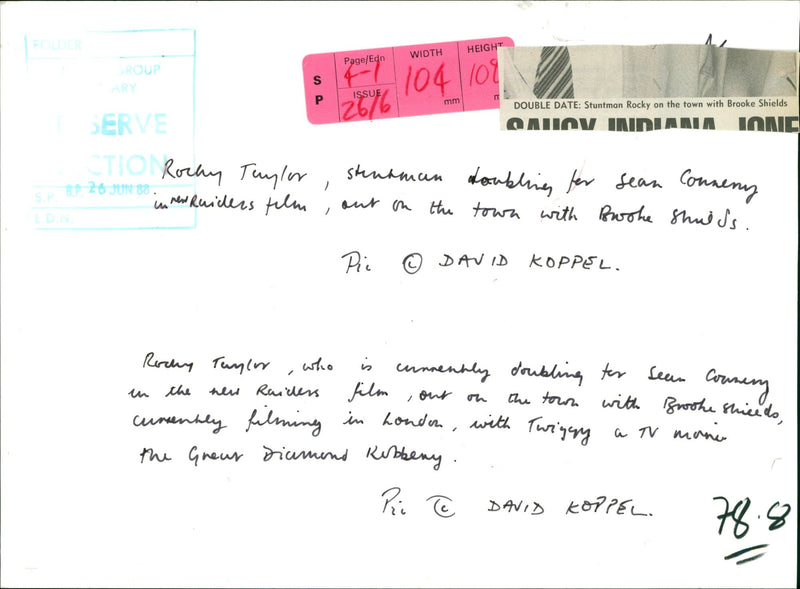 FOLDER
GROUP
S.P. B.P. 26 JUN 88
L.D.N.
S P
Page/Edn 4-1
ISSUE 26/6
WIDTH 104 mm
HEIGHT
DOUBLE DATE: Stuntman Rocky on the town with Brooke Shields
SAUCY INDIANA JONE
Rocky Taylor, stuntman doubling for Sean Connery
in new Raiders film, out on the town with Brooke Shields.
Pic © DAVID KOPPEL.
Rocky Taylor, who is currently doubling for Sean Connery
in the new Raiders film, out on the town with Brooke Shields,
currently filming in London, with Twiggy a TV movie
the Great Diamond Robbery.
Pic © DAVID KOPPEL.
78.8